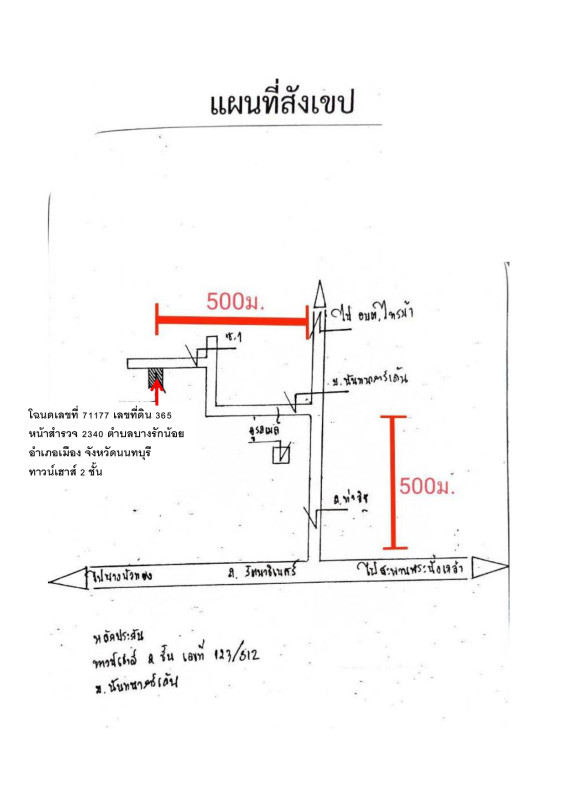 แผนที่สังเขป
500ม.
ไป อบต.ไทรม้า
ซ.1
ม.นันทนาการ์เด้น
โฉนดเลขที่ 71177 เลขที่ดิน 365
หน้าสำรวจ 2340 ตำบลบางรักน้อย
อำเภอเมือง จังหวัดนนทบุรี
ทาวน์เฮาส์ 2 ชั้น
500ม.
ถ.ท่าอิฐ
ไปบางบัวทอง
ถ. รัตนาธิเบศร์
ไปสะพานพระนั่งเกล้า
หลักประกัน
ทาวน์เฮ้าส์ 2 ชั้น เลขที่ 123/512
ม.นันทนาการ์เด้น